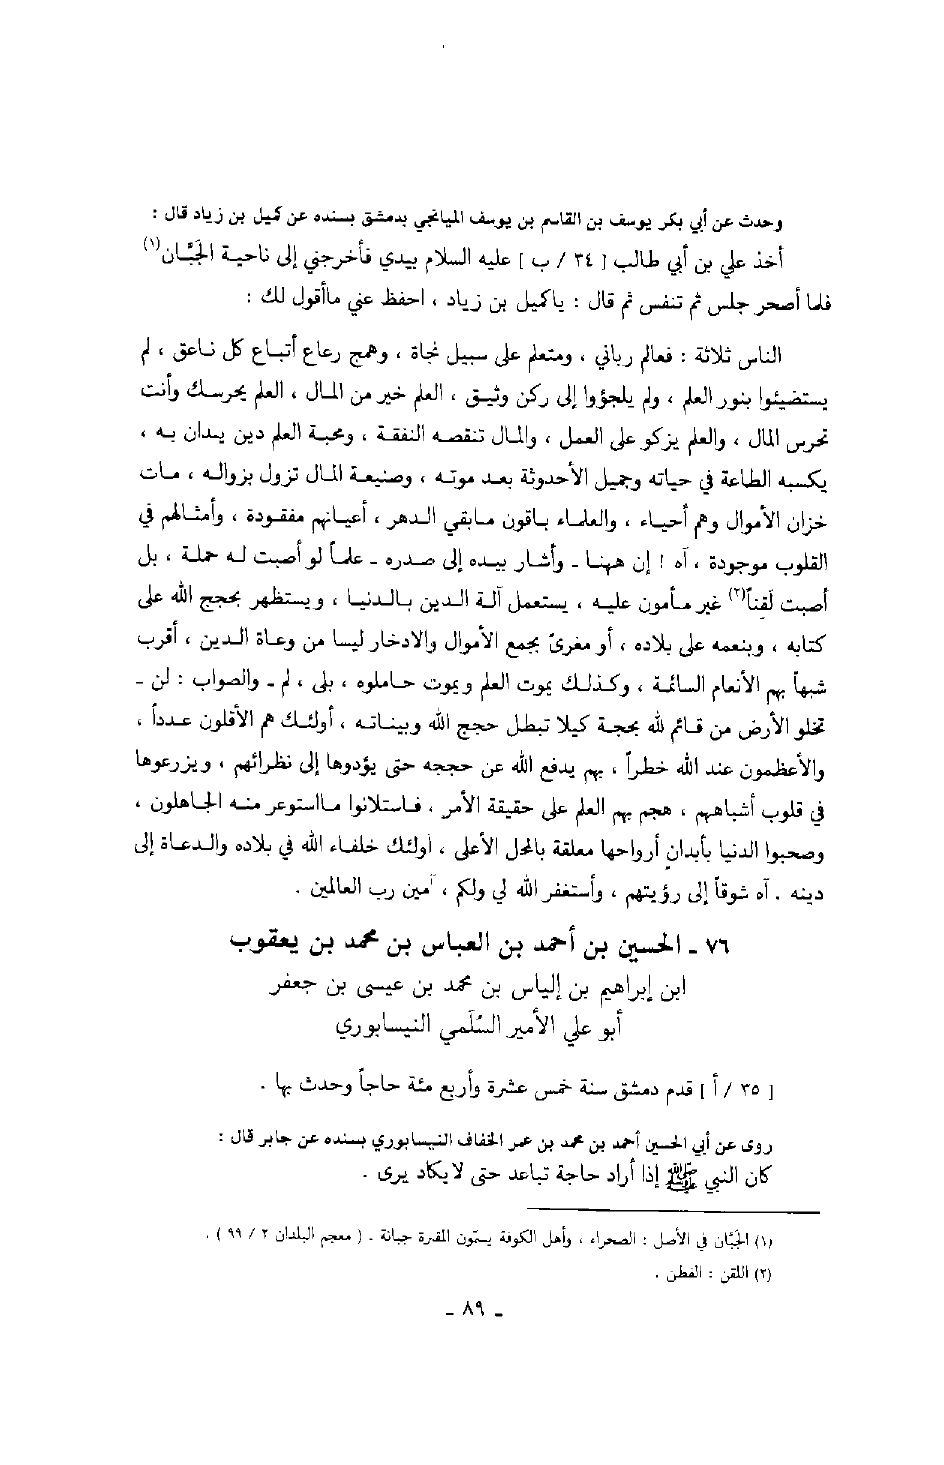 وحدث عن أبي بكر يوسف بن القاسم بن يوسف الميانجي بدمشق بسنده عن كميل بن زياد قال :
أخذ علي بن أبي طالب [ ٣٤ / ب ] عليه السلام بيدي فأخرجني إلى ناحية الجَبَّان(١)
فلما أصحر جلس ثم تنفس ثم قال : ياكميل بن زياد ، احفظ عني ماأقول لك :
الناس ثلاثة : فعالم رباني ، ومتعلم على سبيل نجاة ، وهمج رعاع أتباع كل ناعق ، لم
يستضيئوا بنور العلم ، ولم يلجؤوا إلى ركن وثيق ، العلم خير من المال ، العلم يحرسك وأنت
تحرس المال ، والعلم يزكو على العمل ، والمال تنقصه النفقة ، ومحبة العلم دين يدان به ،
يكسبه الطاعة في حياته وجميل الأحدوثة بعد موته ، وصنيعة المال تزول بزواله ، مات
خزان الأموال وهم أحياء ، والعلماء باقون مابقي الدهر ، أعيانهم مفقودة ، وأمثالهم في
القلوب موجودة ، آه ! إن ههنا - وأشار بيده إلى صدره - علماً لو أصبت له حملة ، بل
أصبت لَقِناً(٢) غير مأمون عليه ، يستعمل آلة الدين بالدنيا ، ويستظهر بحجج الله على
كتابه ، وبنعمه على بلاده ، أو مغرىً بجمع الأموال والادخار ليسا من وعاة الدين ، أقرب
شبهاً بهم الأنعام السائمة ، وكذلك يموت العلم ويموت حاملوه ، بلى ، لم - والصواب : لن -
تخلو الأرض من قائم لله بحجة كيلا تبطل حجج الله وبيناته ، أولئك هم الأقلون عدداً ،
والأعظمون عند الله خطراً ، بهم يدفع الله عن حججه حتى يؤدوها إلى نظرائهم ، ويزرعوها
في قلوب أشباههم ، هجم بهم العلم على حقيقة الأمر ، فاستلانوا مااستوعر منه الجاهلون ،
وصحبوا الدنيا بأبدانٍ أرواحها معلقة بالمحل الأعلى ، أولئك خلفاء الله في بلاده والدعاة إلى
دينه . آه شوقاً إلى رؤيتهم ، وأستغفر الله لي ولكم ، آمين رب العالمين .
٧٦ - الحسين بن أحمد بن العباس بن محمد بن يعقوب
ابن إبراهيم بن إلياس بن محمد بن عيسى بن جعفر
أبو علي الأمير السُّلَمي النيسابوري
[ ٣٥ / أ ] قدم دمشق سنة خمس عشرة وأربع مئة حاجاً وحدث بها .
روى عن أبي الحسين أحمد بن محمد بن عمر الخفاف النيسابوري بسنده عن جابر قال :
كان النبي ﷺ إذا أراد حاجة تباعد حتى لايكاد يرى .
(١) الجَبَّان في الأصل : الصحراء ، وأهل الكوفة يسمّون المقبرة جبانة . ( معجم البلدان ٢ / ٩٩ ) .
(٢) اللقن : الفطن .
- ٨٩ -